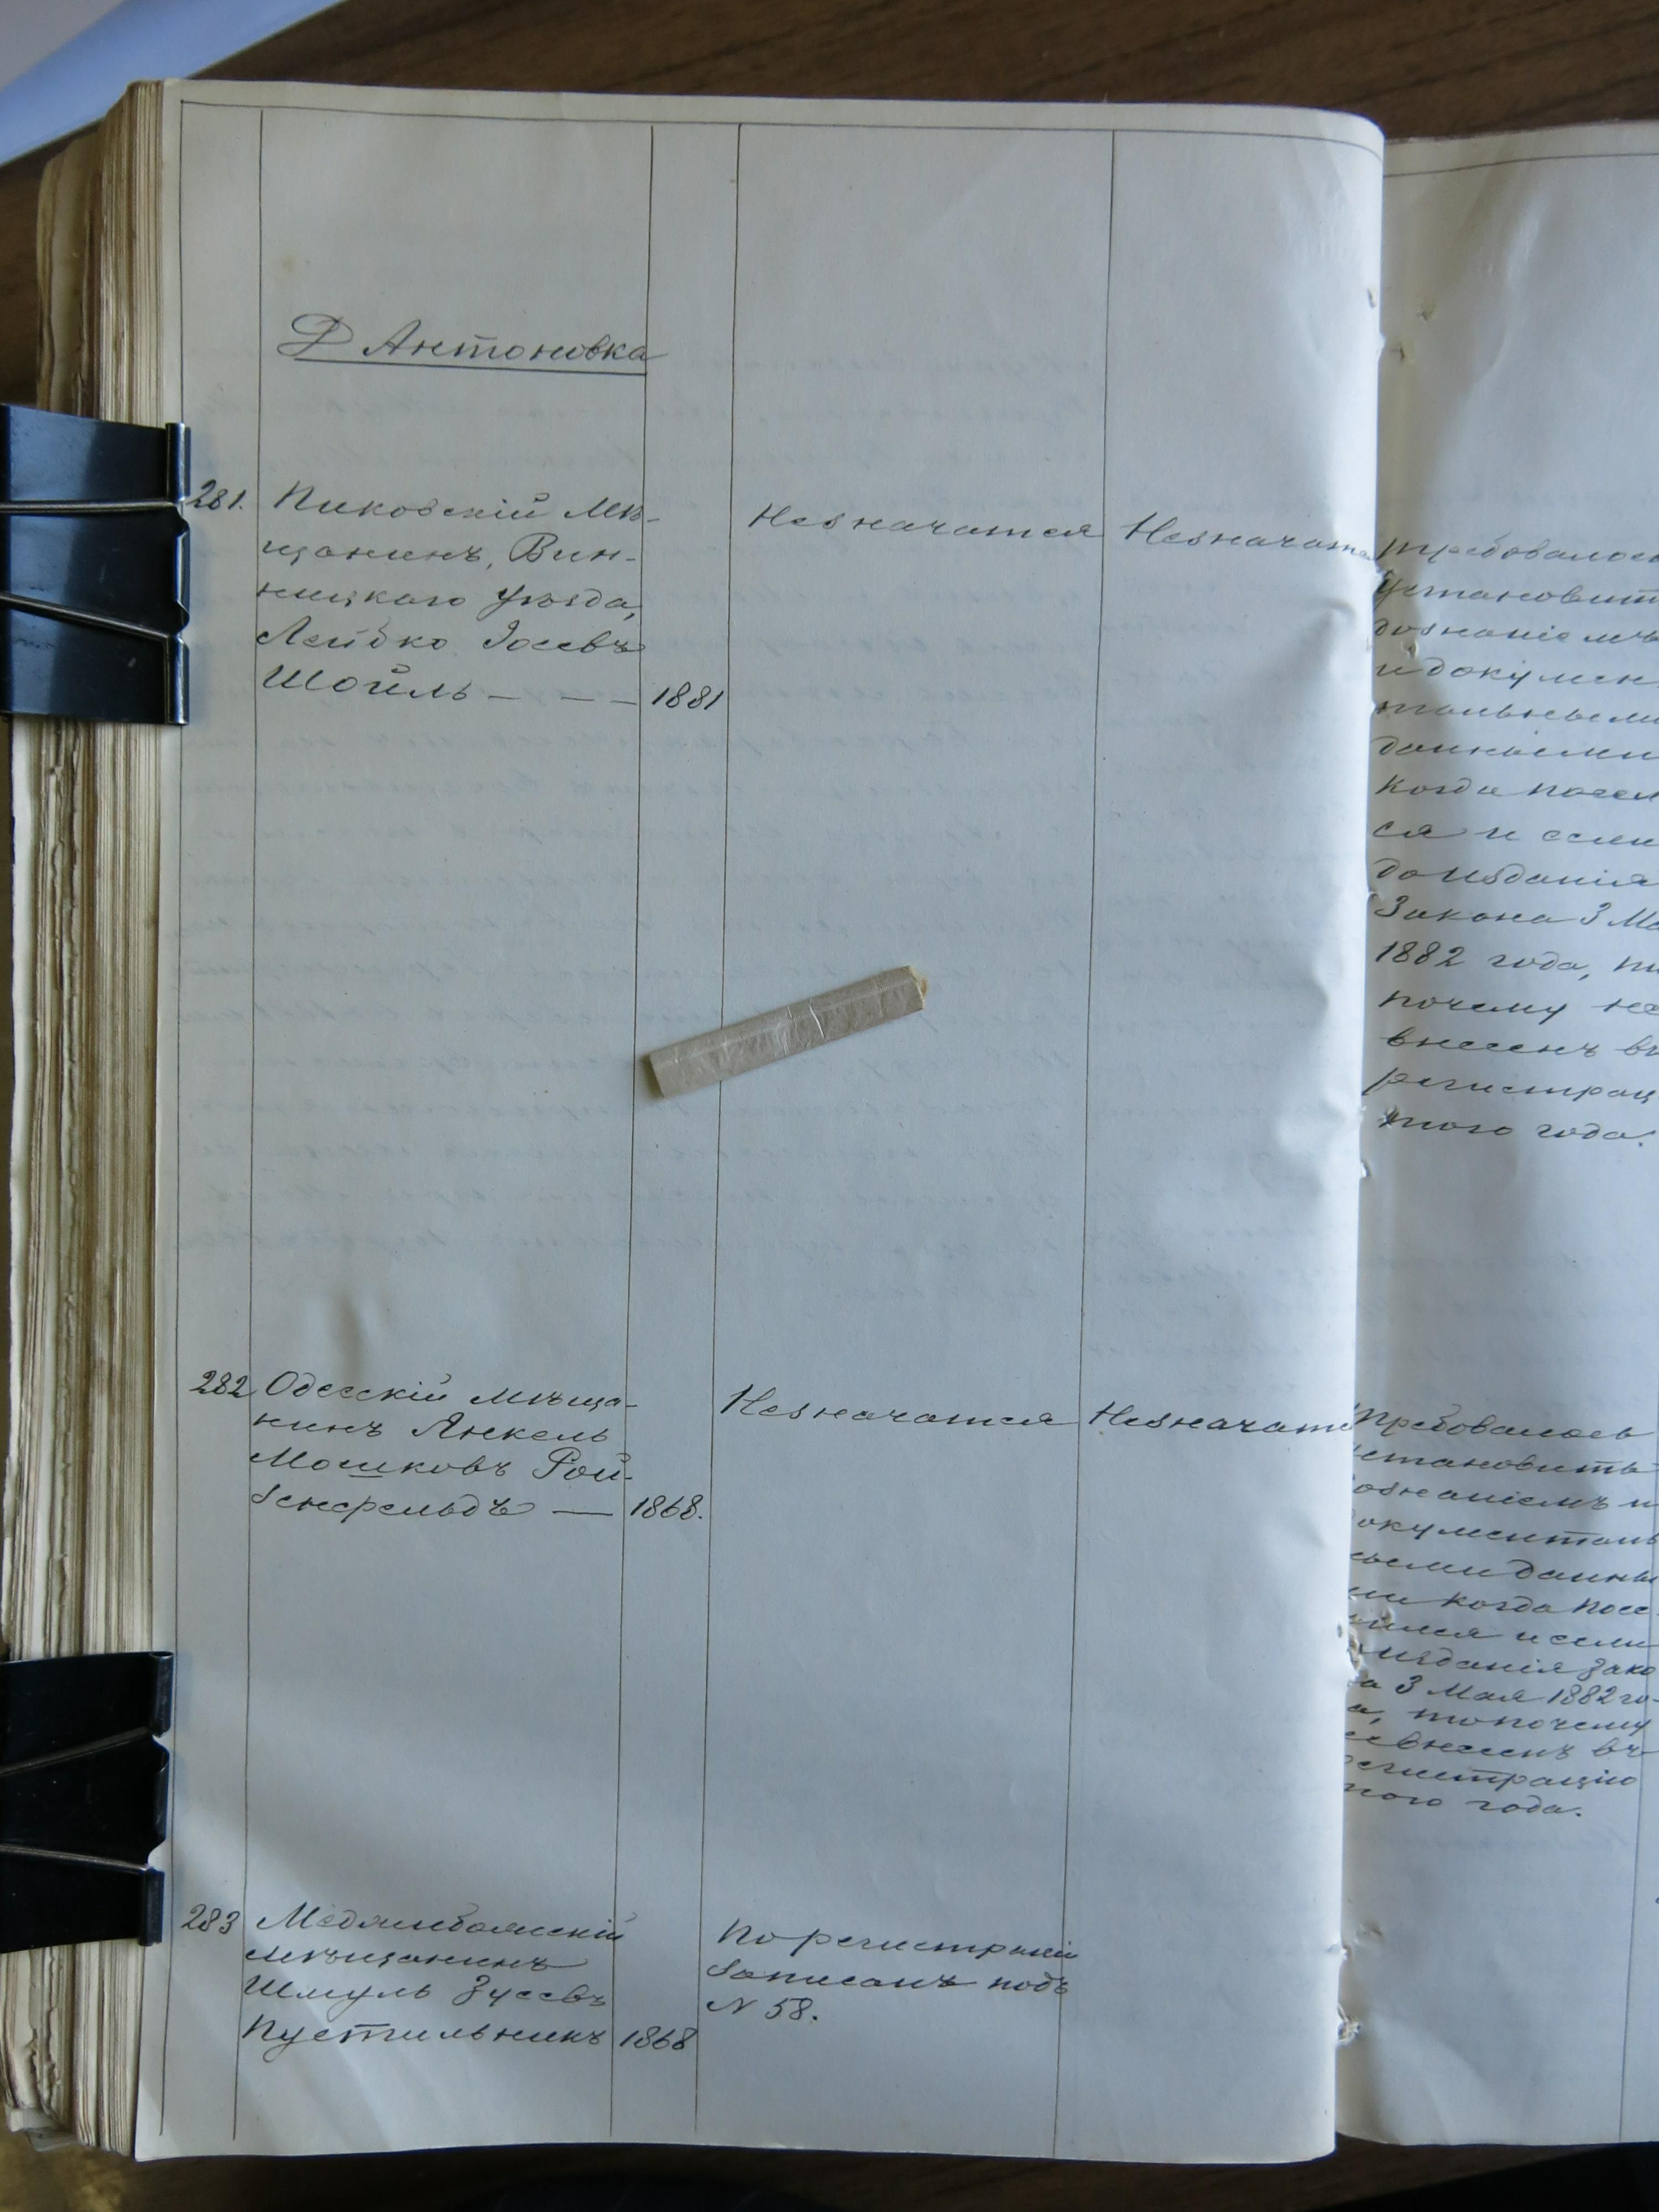 Д Антоновка
281.
Пиковскій Мѣ-
щанинъ, Вин-
ницкаго Уѣзда,
Лейбко Іосевъ
Шойль — — — 1881
Незначатся
Незначатся
требовалось
установит
дознаніемъ
и докумен
тальными
данными
когда посел
ся и если
до изданія
Закона 3 Ма
1882 года, то
почему не
внесенъ въ
регистрац
того года.
282
Одесскій мѣща-
нинъ Янкель
Мошковъ Рой-
зенфельдъ — 1868.
Незначатся
Незначатс
Требовалось
установить
ознаніемъ и
окументаль
ными данны
ми когда посе
лился и если
изданія Зако
а 3 Мая 1882 го-
а, то почему
невнесенъ въ
регистрацію
того года.
283
мѣщанинъ
Шмуль Зусевъ
Пустильникъ 1868
По регистраціи
записанъ подъ
N 58.